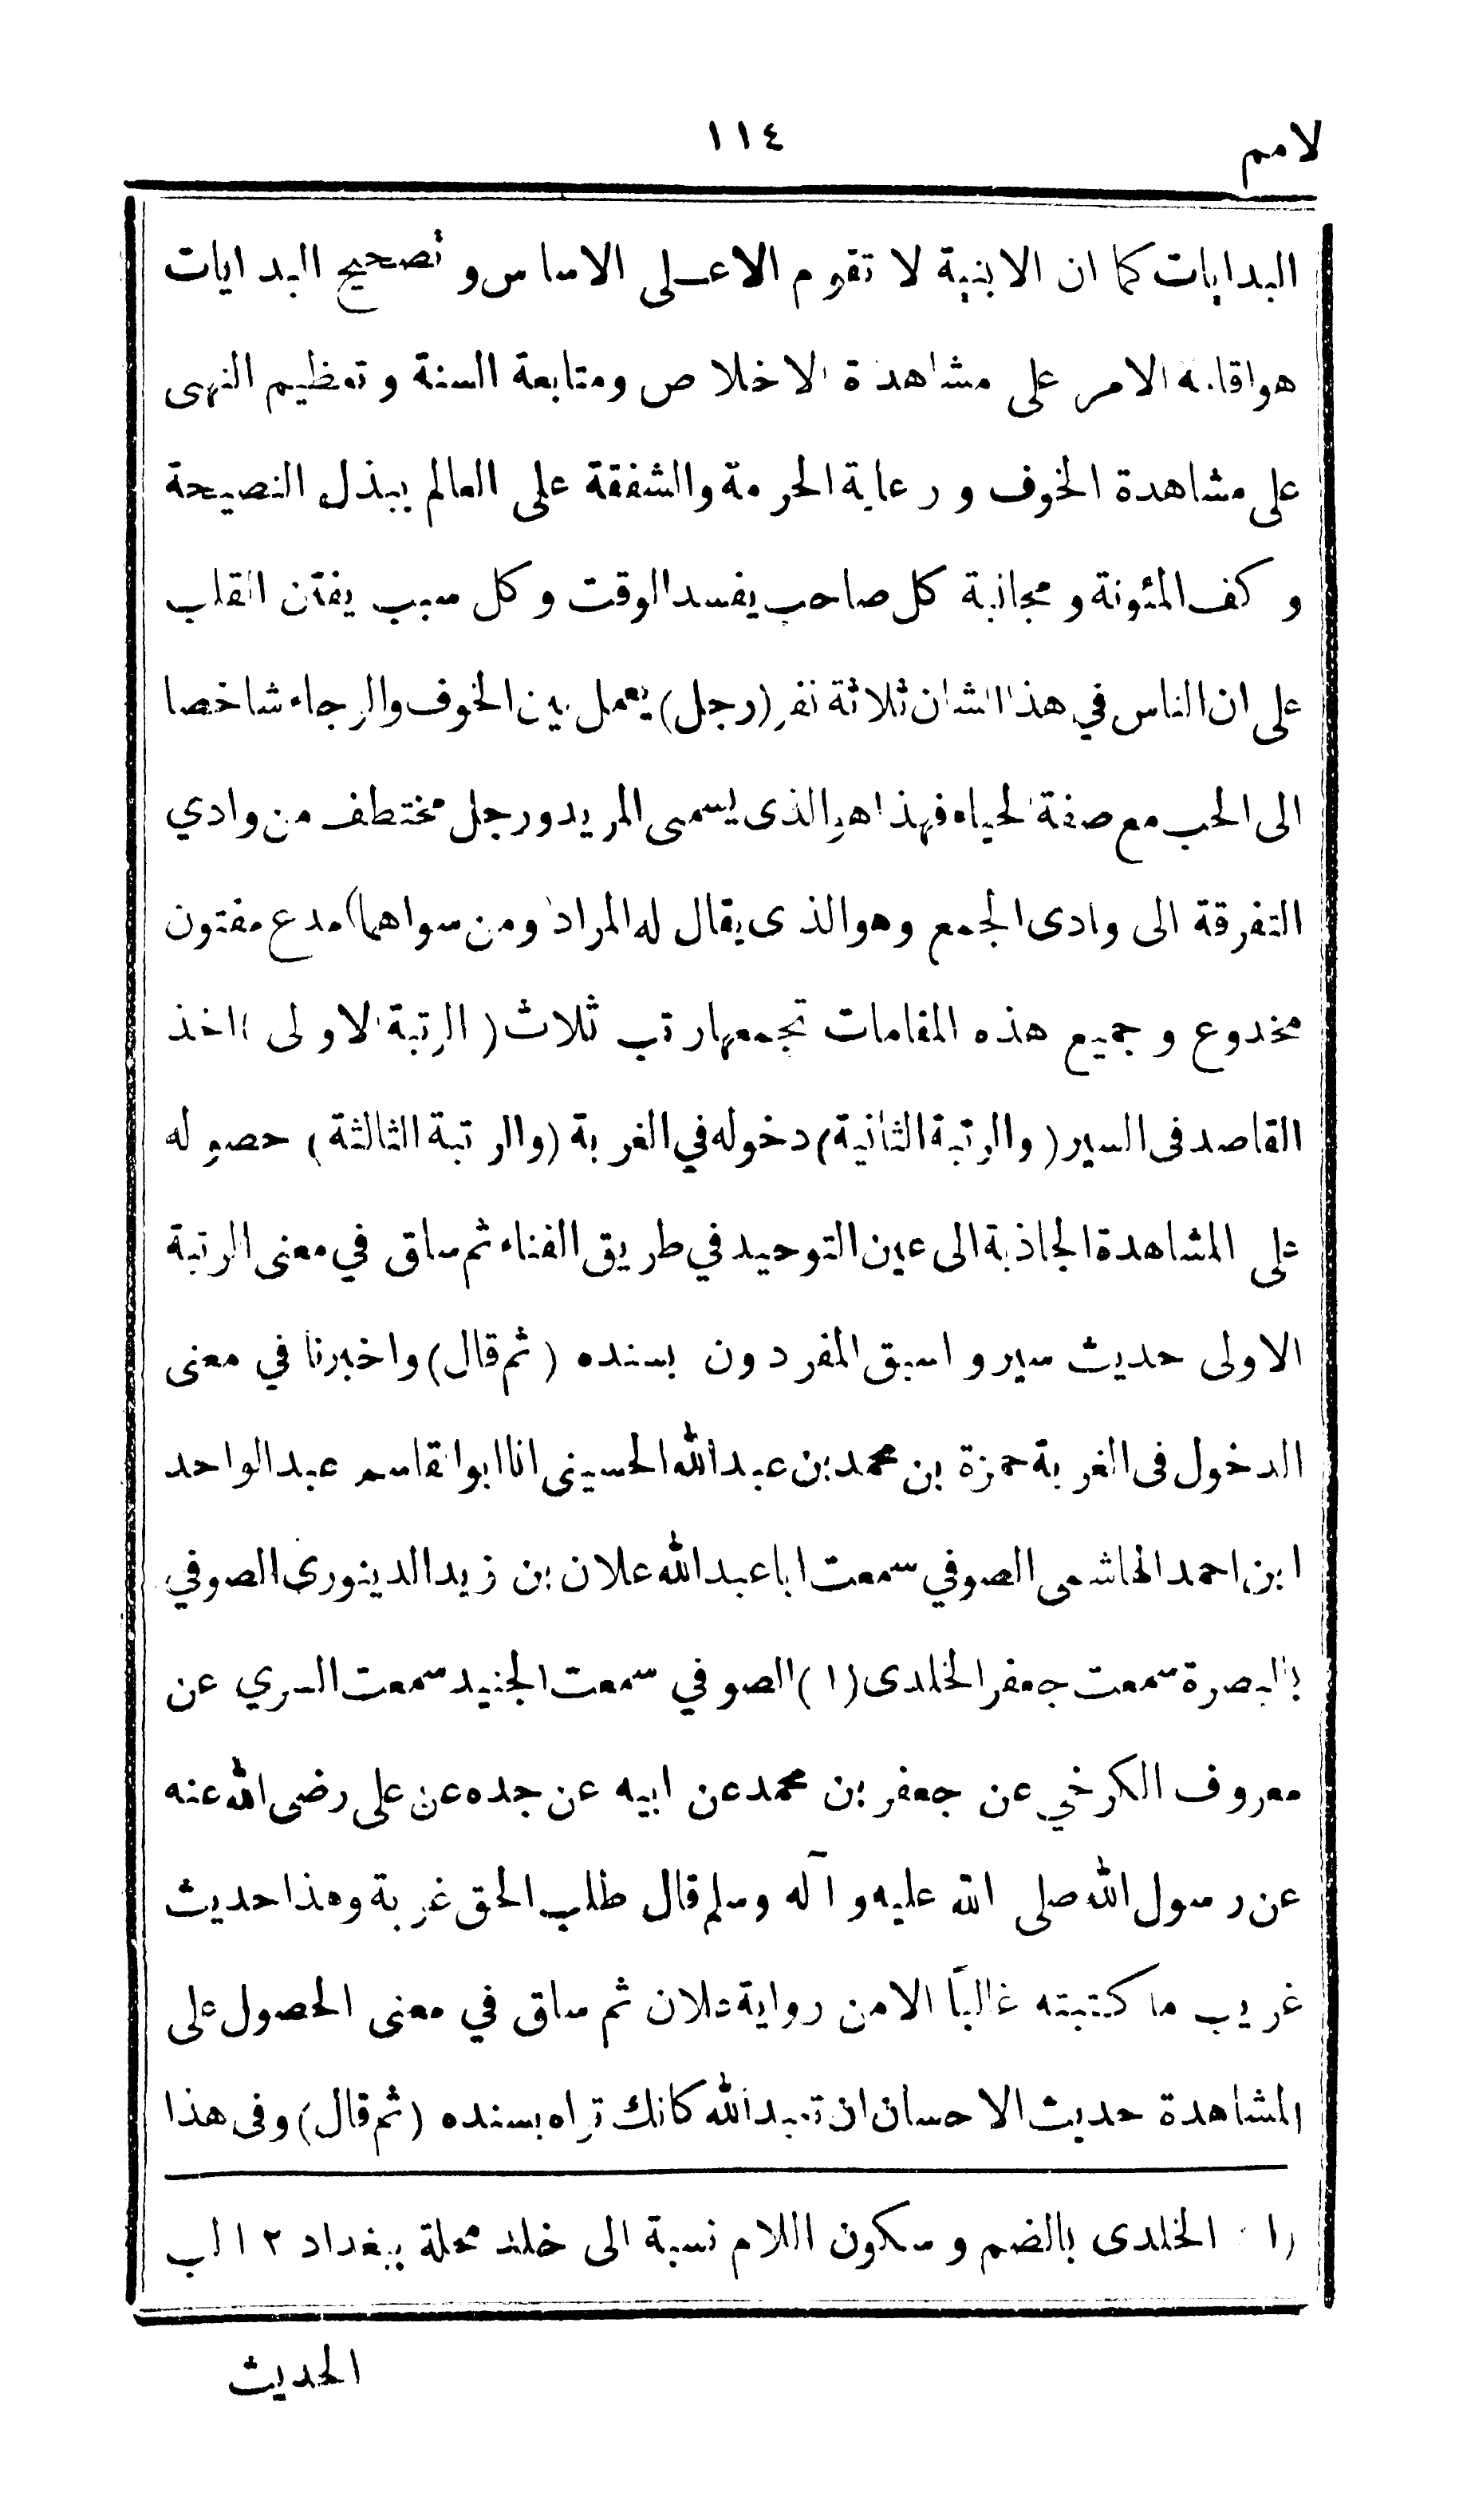 لامم
١١٤
البدايات كما ان الابنية لا تقوم الا على الاساس و تصحيح البدايات
هو اقامة الامر على مشاهدة الاخلاص ومتابعة السنة وتعظيم النهى
على مشاهدة الخوف و رعاية الحرمة والشفقة على العالم ببذل النصيحة
و كف المئونة و مجانبة كل صاحب يفسد الوقت وكل سبب يفتن القلب
على ان الناس في هذا الشان ثلاثة نفر (رجل) يعمل بين الخوف والرجاء شاخصا
الى الحب مع صفة الحياء فهذا هو الذى يسمى المريد ورجل مختطف من وادي
التفرقة الى وادى الجمع وهو الذى يقال له المراد (ومن سواهما) مدع مفتون
مخدوع وجميع هذه المقامات تجمعها رتب ثلاث (الرتبة الاولى) اخذ
القاصد فى السير (والرتبة الثانية) دخوله في الغربة (والرتبة الثالثة) حصوله
على المشاهدة الجاذبة الى عين التوحيد في طريق الفناء ثم ساق في معنى الرتبة
الاولى حديث سيروا سبق المفردون بسنده (ثم قال) واخبرنا في معنى
الدخول فى الغربة حمزة بن محمد بن عبد الله الحسينى انا ابو القاسم عبد الواحد
ابن احمد الهاشمى الصوفي سمعت ابا عبد الله علان بن زيد الدينورى الصوفي
بالبصرة سمعت جعفر الخلدى (١) الصوفي سمعت الجنيد سمعت السري عن
معروف الكرخي عن جعفر بن محمد عن ابيه عن جده عن على رضى الله عنه
عن رسول الله صلى الله عليه و آله وسلم قال طلب الحق غربة وهذا حديث
غريب ما كتبته غالبًا الا من رواية علان ثم ساق في معنى الحصول على
المشاهدة حديث الاحسان ان تعبد الله كانك تراه بسنده (ثم قال) وفى هذا
(١) الخلدى بالضم و سكون اللام نسبة الى خلد محلة ببغداد ١٢ لب
الحديث